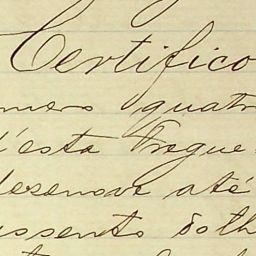 Certifico
mero quatr
d'esta Fregue
dezenove até
ssento sob